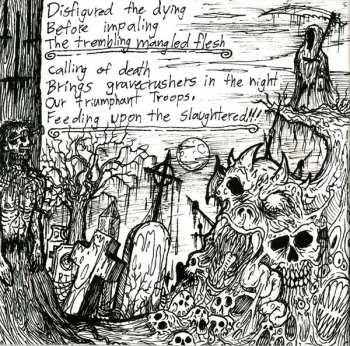 Disfigured the dying
Before impaling
The trembling mangled flesh
Calling of death
Brings gravecrushers in the night
Our triumphant Troops.
Feeding upon the slaughtered!!!